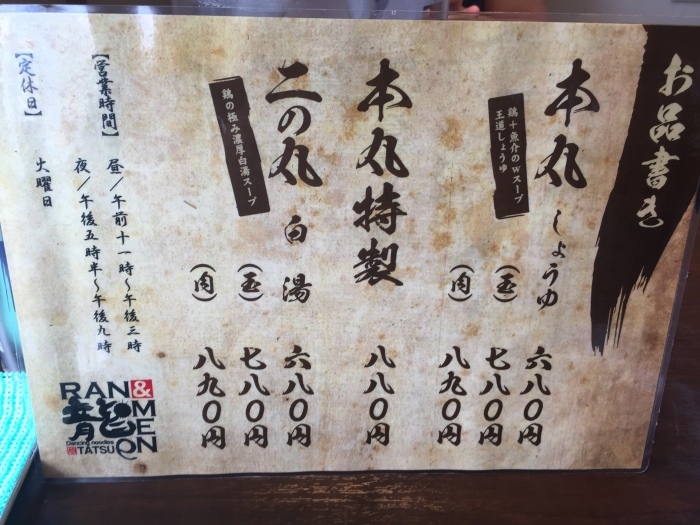 お品書き
本丸 しょうゆ 六八〇円
鶏＋魚介のWスープ
王道しょうゆ
（玉） 七八〇円
（肉） 八九〇円
本丸特製 八八〇円
二の丸 白湯 六八〇円
鶏の極み濃厚白湯スープ
（玉） 七八〇円
（肉） 八九〇円
【営業時間】 昼／午前十一時～午後三時
夜／午後五時半～午後九時
【定休日】 火曜日
RAN & MEN
Dancing noodles
TATSU